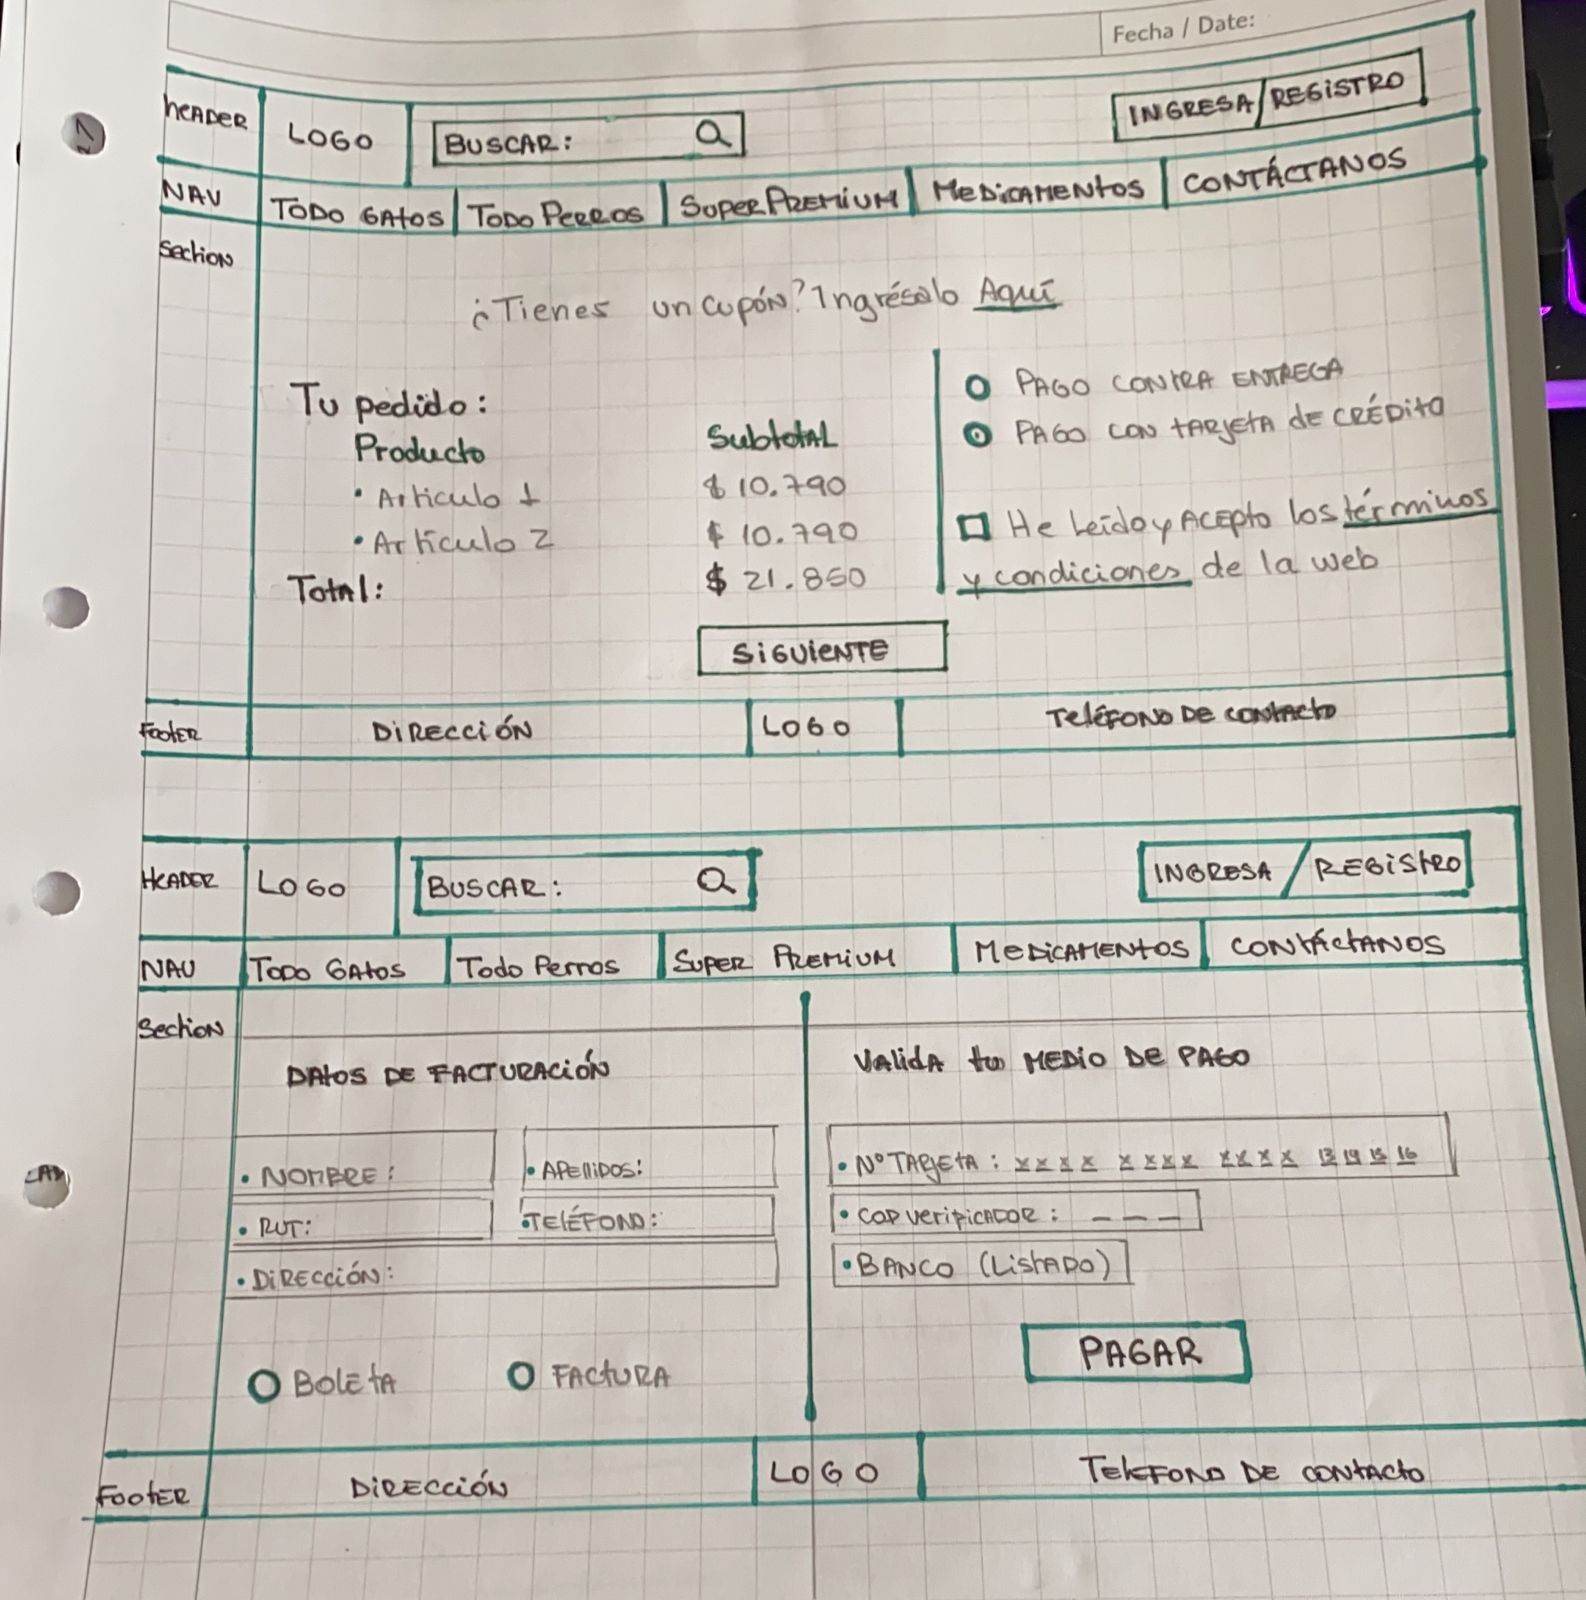 Fecha / Date:
HEADER
LOGO
BUSCAR:
INGRESA/REGISTRO
NAV
TODO GATOS
TODO PERROS
SUPER PREMIUM
MEDICAMENTOS
CONTÁCTANOS
Section
¿Tienes un cupón? Ingrésalo Aquí
Tu pedido:
Producto Subtotal
• Articulo 1 $ 10.790
• Artículo 2 $ 10.790
Total: $ 21.850
PAGO CONTRA ENTREGA
PAGO CON TARJETA DE CRÉDITO
He Leído y Acepto los términos
y condiciones de la web
SIGUIENTE
Footer
DIRECCIÓN
LOGO
TELÉFONO DE CONTACTO
HEADER
LOGO
BUSCAR:
INGRESA / REGISTRO
NAV
TODO GATOS
Todo Perros
SUPER PREMIUM
MEDICAMENTOS
CONTÁCTANOS
Section
DATOS DE FACTURACIÓN
• NOMBRE:
• APELLIDOS:
• RUT:
• TELÉFONO:
• DIRECCIÓN:
BOLETA
FACTURA
VALIDA tu MEDIO DE PAGO
• N° TARJETA: x x x x x x x x x x x x 13 14 15 16
• COD VERIFICADOR: _ _ _
• BANCO (LISTADO)
PAGAR
FOOTER
DIRECCIÓN
LOGO
TELEFONO DE CONTACTO